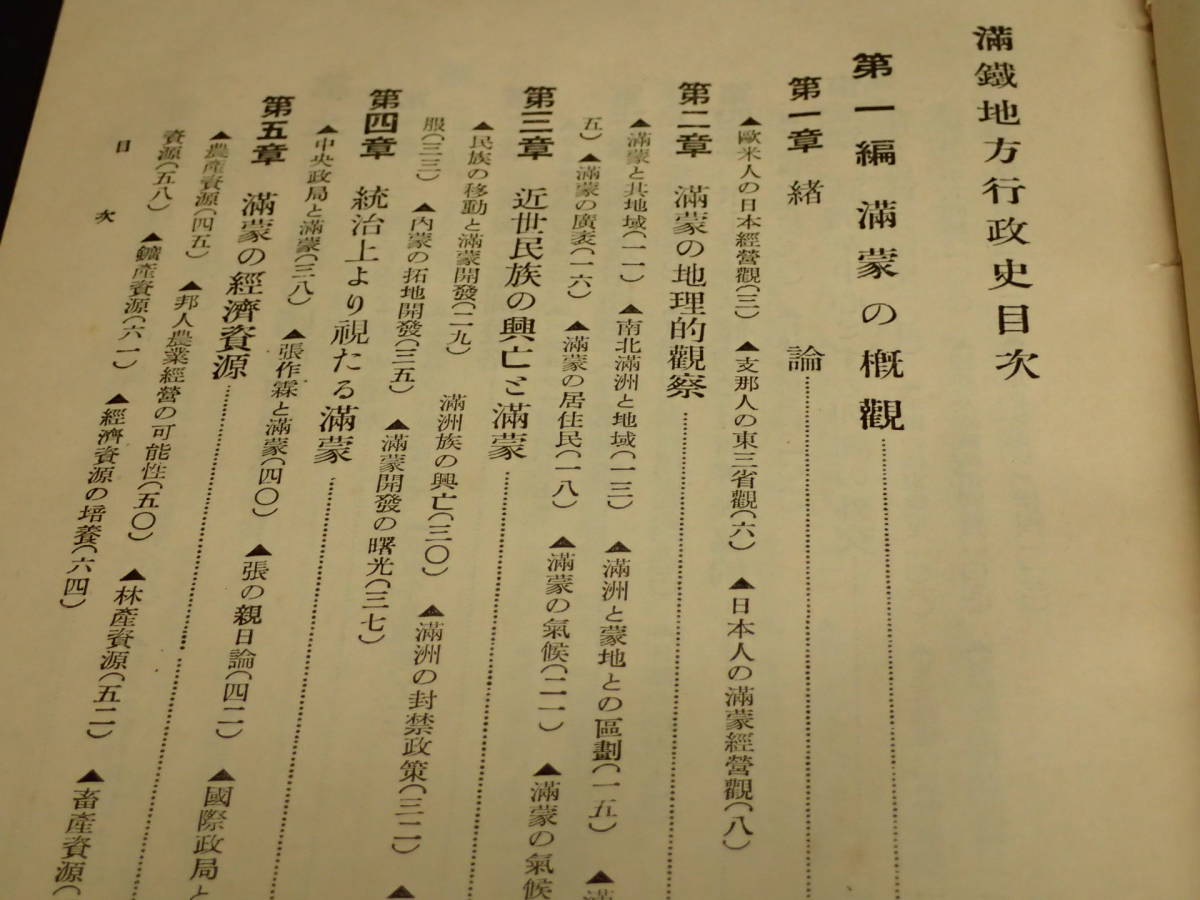 滿鐵地方行政史目次
第一編 滿蒙の槪觀
第一章 緖論
▲歐米人の日本經營觀(三) ▲支那人の東三省觀(六) ▲日本人の滿蒙經營觀(八)
第二章 滿蒙の地理的觀察
▲滿蒙と其地域(一一) ▲南北滿洲と地域(一三) ▲滿洲と蒙地との區劃(一五) ▲滿
五) ▲滿蒙の廣袤(一六) ▲滿蒙の居住民(一八) ▲滿蒙の氣候(二一) ▲滿蒙の氣候
第三章 近世民族の興亡と滿蒙
▲民族の移動と滿蒙開發(二九) 滿洲族の興亡(三〇) ▲滿洲の封禁政策(三二) ▲
服(三三) ▲內蒙の拓地開發(三五) ▲滿蒙開發の曙光(三七)
第四章 統治上より視たる滿蒙
▲中央政局と滿蒙(三八) ▲張作霖と滿蒙(四〇) ▲張の親日論(四二) ▲國際政局と
第五章 滿蒙の經濟資源
▲農產資源(四五) ▲邦人農業經營の可能性(五〇) ▲林產資源(五二) ▲畜產資源(
資源(五八) ▲鑛產資源(六一) ▲經濟資源の培養(六四)
目次